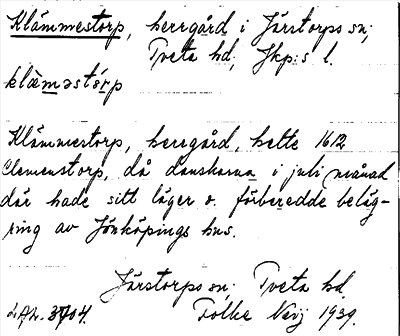 Klämmestorp, herrgård i Järstorps sn;
Tveta hd; Jkp:s l.
klämestórp
Klämmestorp, herrgård, hette 1612
Clemenstorp, då danskarna i juli månad
där hade sitt läger o. förberedde beläg-
ring av Jönköpings hus.
Järstorps sn; Tveta hd.
3704. Folke 1939.